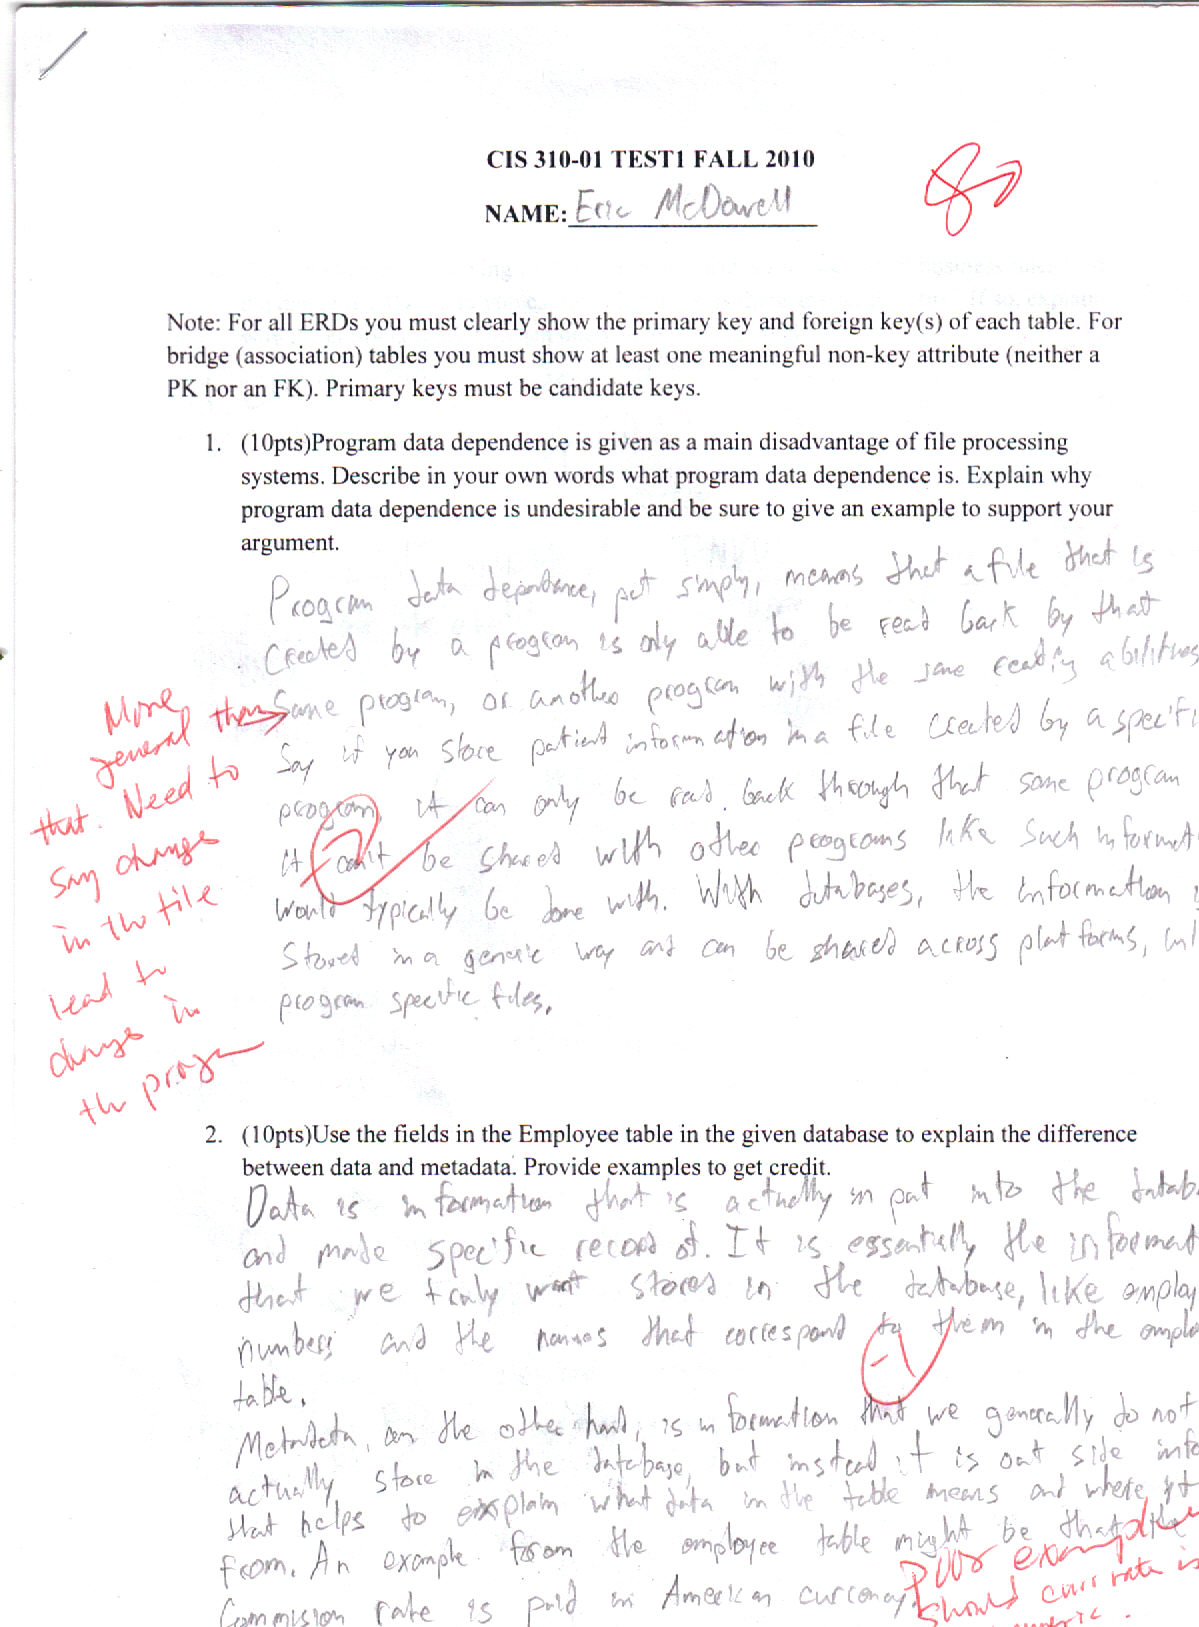 CIS 310-01 TEST1 FALL 2010
80
NAME: Eric McDowell
Note: For all ERDs you must clearly show the primary key and foreign key(s) of each table. For
bridge (association) tables you must show at least one meaningful non-key attribute (neither a
PK nor an FK). Primary keys must be candidate keys.
1. (10pts)Program data dependence is given as a main disadvantage of file processing
systems. Describe in your own words what program data dependence is. Explain why
program data dependence is undesirable and be sure to give an example to support your
argument.
Program data dependence, put simply, means that a file that is
created by a program is only able to be read back by that
same program, or another program with the same reading abilities
Say if you store patient information in a file created by a specifi
program, it can only be read back through that same program
it can't be shared with other programs like such informat
would typically be done with. With databases, the information
stored in a generic way and can be shared across platforms, unl
program specific files.
More
general than
that. Need to
say changes
in the file
lead to
changes in
the program
-2
2. (10pts)Use the fields in the Employee table in the given database to explain the difference
between data and metadata. Provide examples to get credit.
Data is information that is actually in put into the databa
and made specific record of. It is essentially the informat
that we truly want stored in the database, like employ
numbers and the names that correspond to them in the emplo
table.
-1
Metadata, on the other hand, is information that we generally do not
actually store in the database, but instead it is out side info
that helps to explain what data in the table means and where it
from. An example from the employee table might be that the
Commision rate is paid in American currency.
Poor example
should rate is